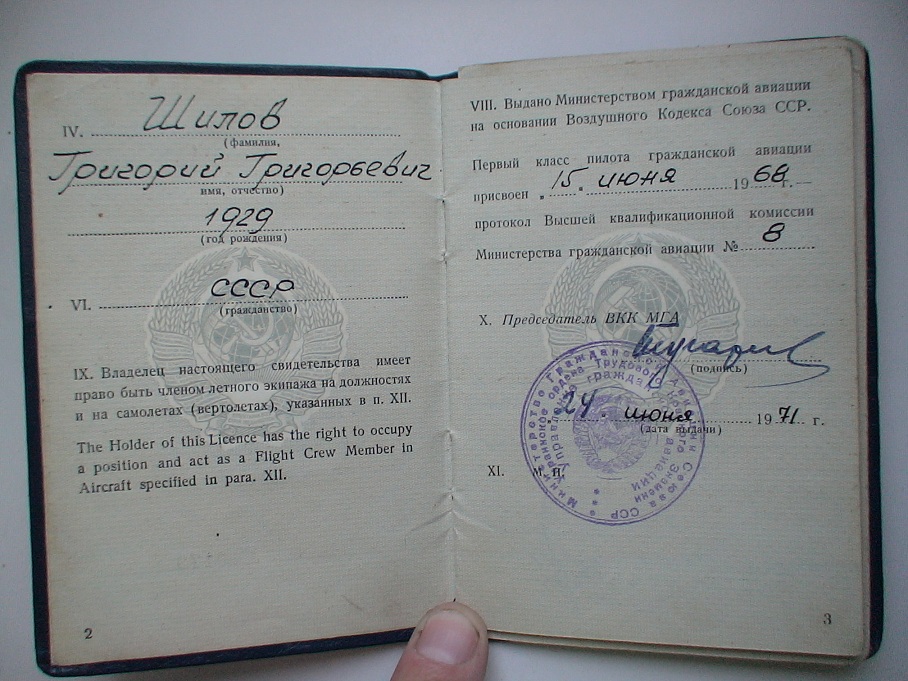 IV. Шилов
(фамилия,
Григорий Григорьевич
имя, отчество)
1929
(год рождения)
VI. СССР
(гражданство)
IX. Владелец настоящего свидетельства имеет
право быть членом летного экипажа на должностях
и на самолетах (вертолетах), указанных в п. XII.
The Holder of this Licence has the right to occupy
a position and act as a Flight Crew Member in
Aircraft specified in para. XII.
2
VIII. Выдано Министерством гражданской авиации
на основании Воздушного Кодекса Союза ССР.
Первый класс пилота гражданской авиации
присвоен „15“ июня 1968 г.—
протокол Высшей квалификационной комиссии
Министерства гражданской авиации № 8
X. Председатель ВКК МГА
(подпись)
24 июня 1971 г.
(дата выдачи)
XI. М. П.
Министерство Гражданской Авиации Союза ССР
Украинское ордена Трудового Красного Знамени
Управление гражданской авиации
3